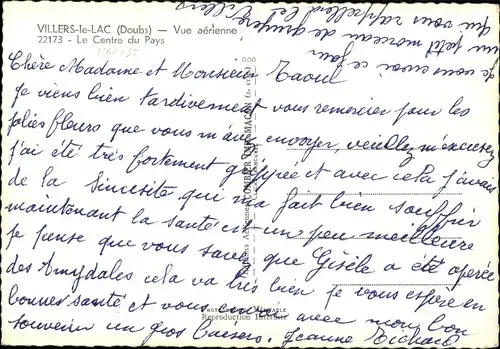 VILLERS-le-LAC (Doubs) — Vue aérienne
22173 - Le Centre du Pays
Chère Madame et Monsieur Raoul
Je viens bien tardivement vous remercier pour les
jolies fleurs que vous m'avez envoyer, veuillez m'excusez
j'ai été très fortement grippée et avec cela j'avais
de la Sinusite qui m'a fait bien souffrir
maintenant la santé est un peu meilleure
je pense que vous savez que Gisèle a été opérée
des Amygdales cela va très bien je vous espère en
bonnes santé et vous envoie avec mon bon
souvenir un gros baisers. Jeanne Richard
Je vous envoie ce jour
un petit morceau de gruyère
qui vous rappellera Villers
Reproduction Interdite